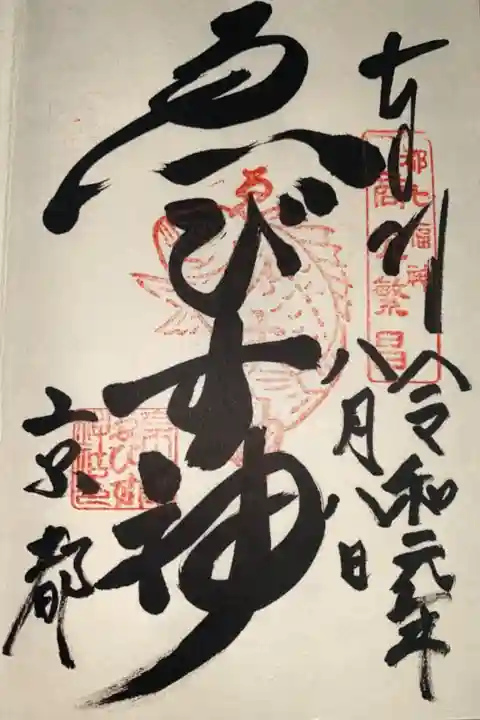 奉拝
都七福神
商売繁昌
令和元年
八月八日
ゑびす神
京都